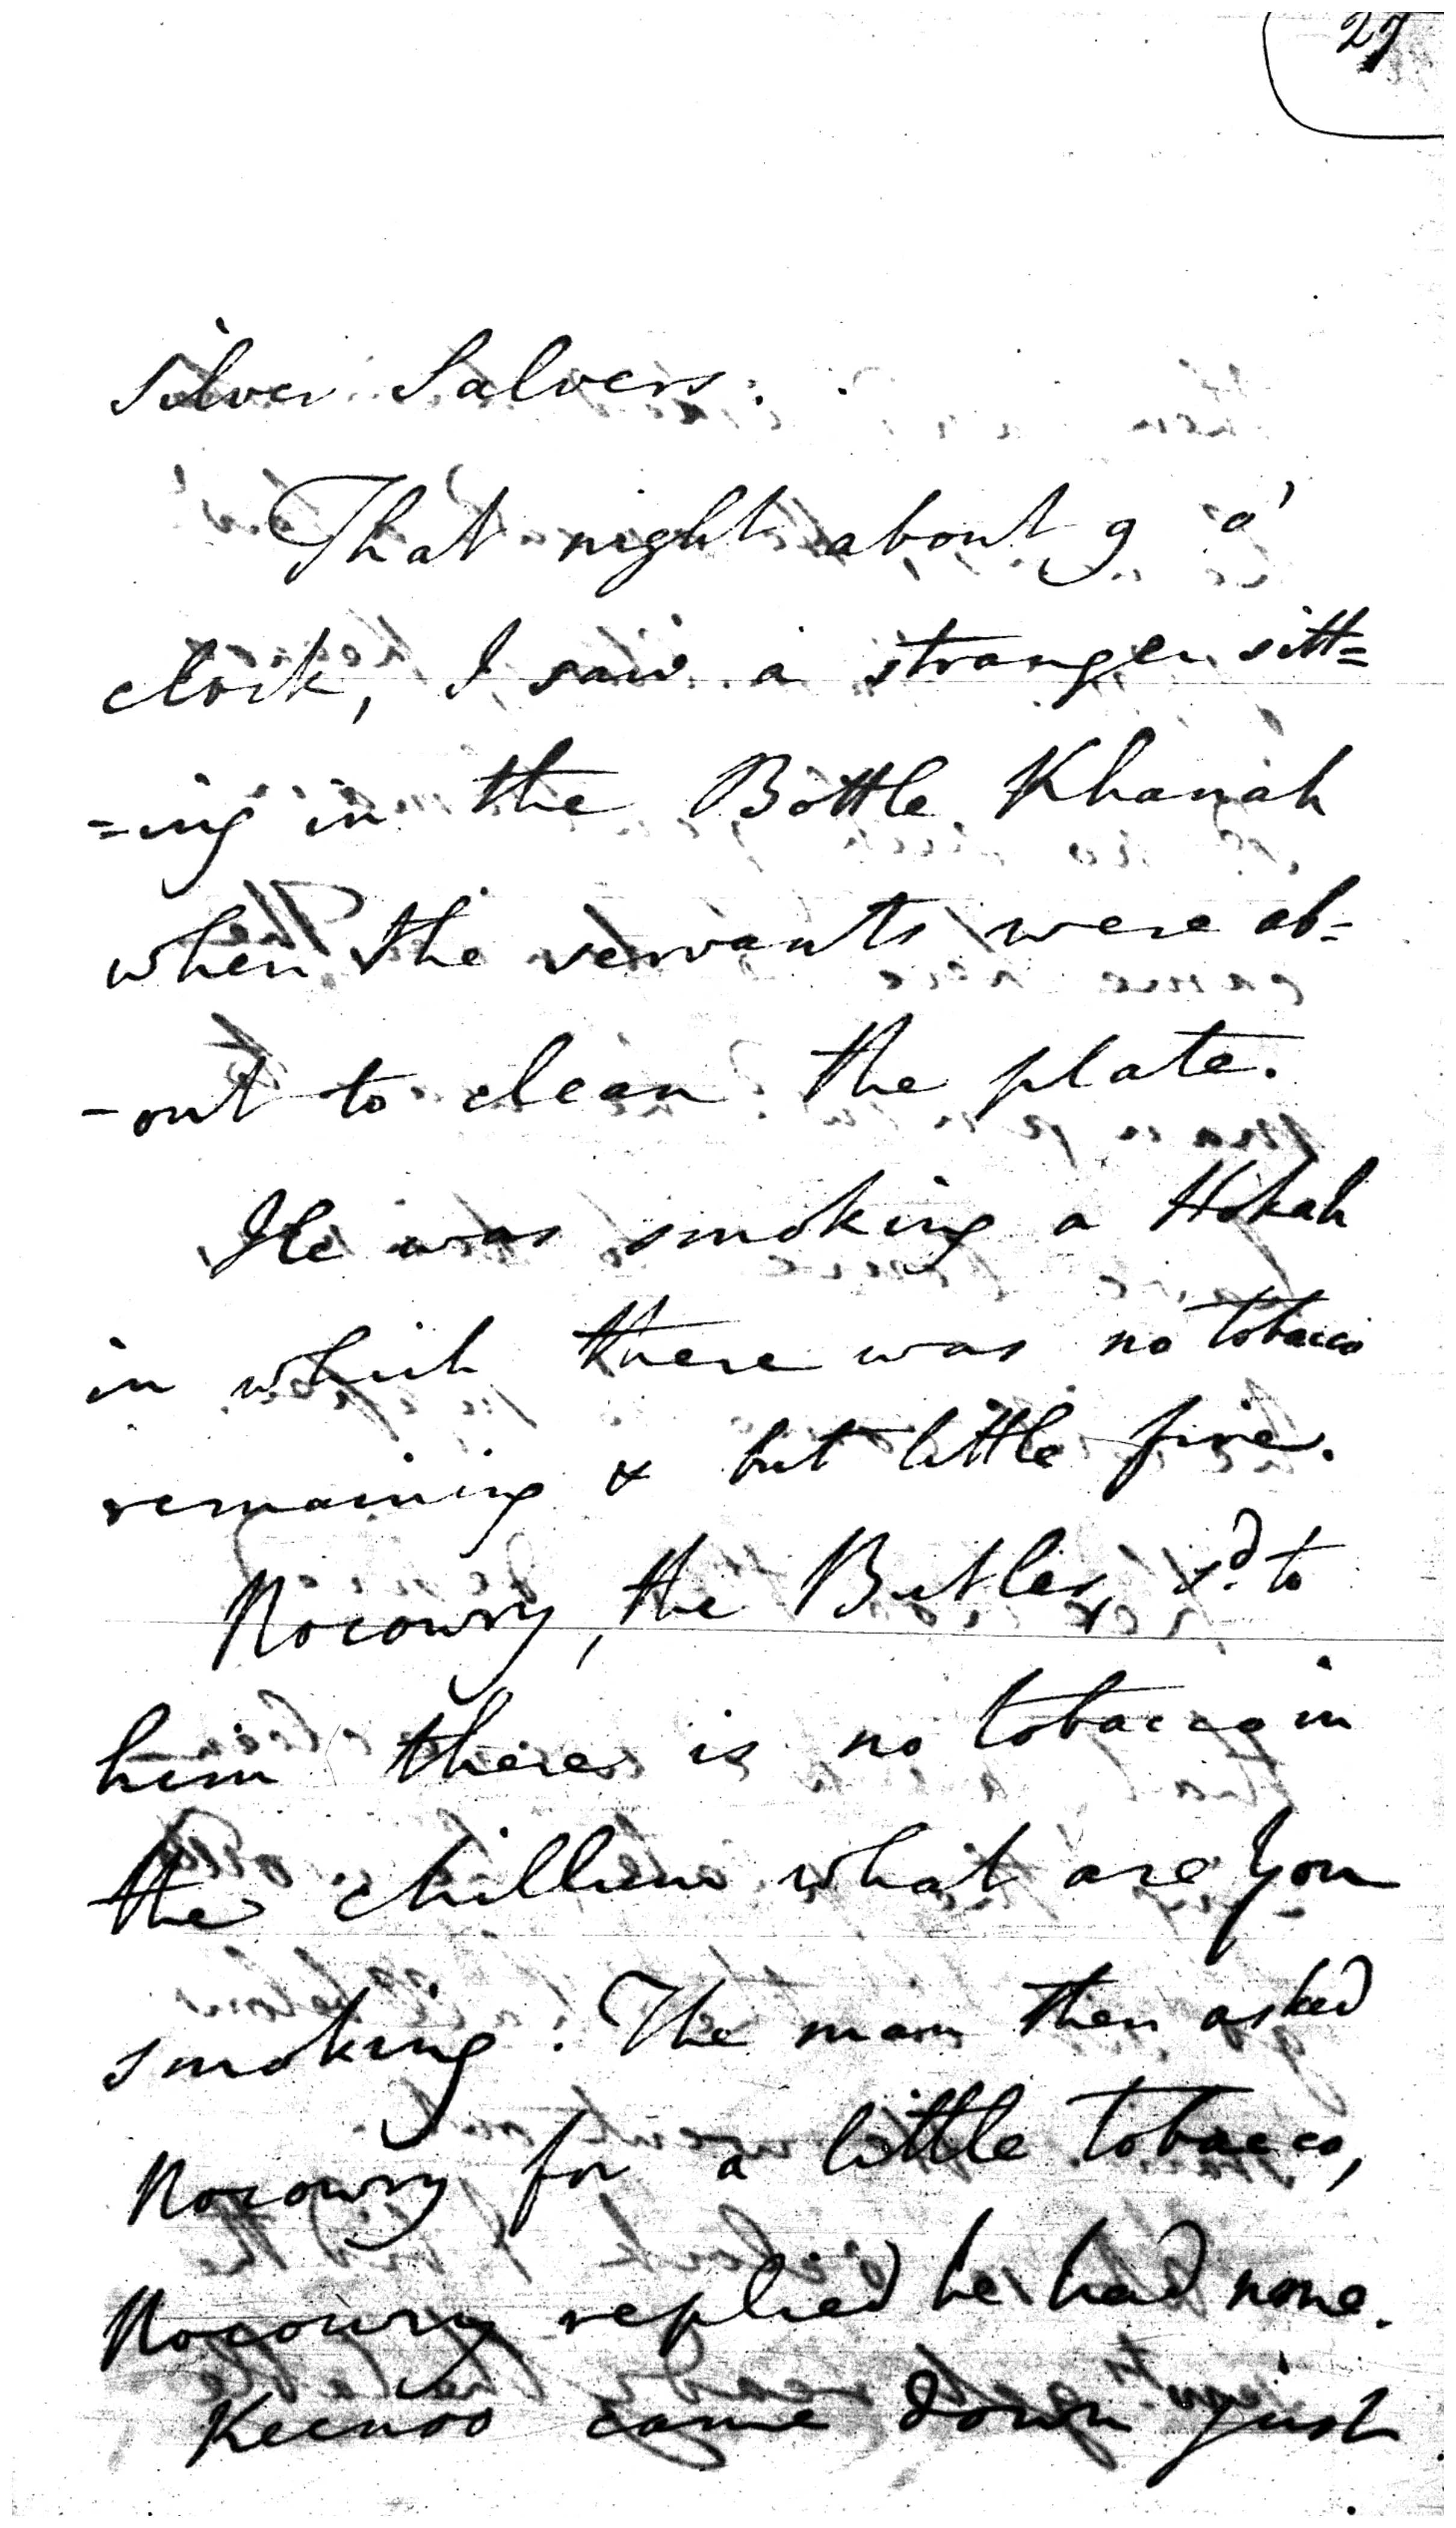 27
Silver Salvers.
That night about 9 o'
clock, I saw a stranger sitt=
=ing in the Bottle Khanah
when the servants were ab=
-out to clean the plate.
He was smoking a Hokah
in which there was no tobacco
remaining & but little fire.
Nocowry, the Butler, sd. to
him there is no tobacco in
the chillum what are you
smoking. The man then asked
Nocowry for a little tobacco,
Nocowry replied he had none.
Keenoo came down just